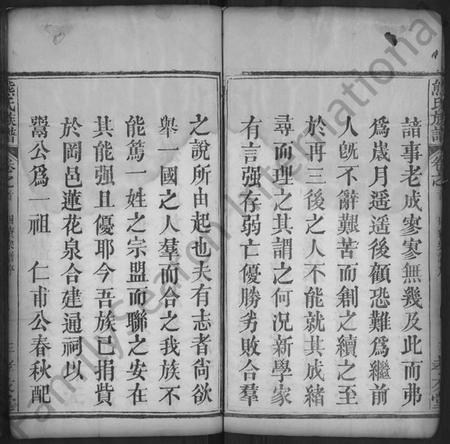 諳事老成寥寥無幾及此而弗
為歲月遥遥後顧恐難為繼前
人旣不辭艱苦而創之續之至
於再三後之人不能就其成緒
尋而理之其謂之何况新學家
有言强存弱亡優勝劣敗合羣
之說所由起也夫有志者尙欲
舉一國之人羣而合之我族不
能篤一姓之宗盟而聯之安在
其能强且優耶今吾族已捐貲
於岡邑蓮花泉合建通祠以
鬻公爲一祖　仁甫公春秋配
熊氏族譜
熊氏族譜
FamilySearch International